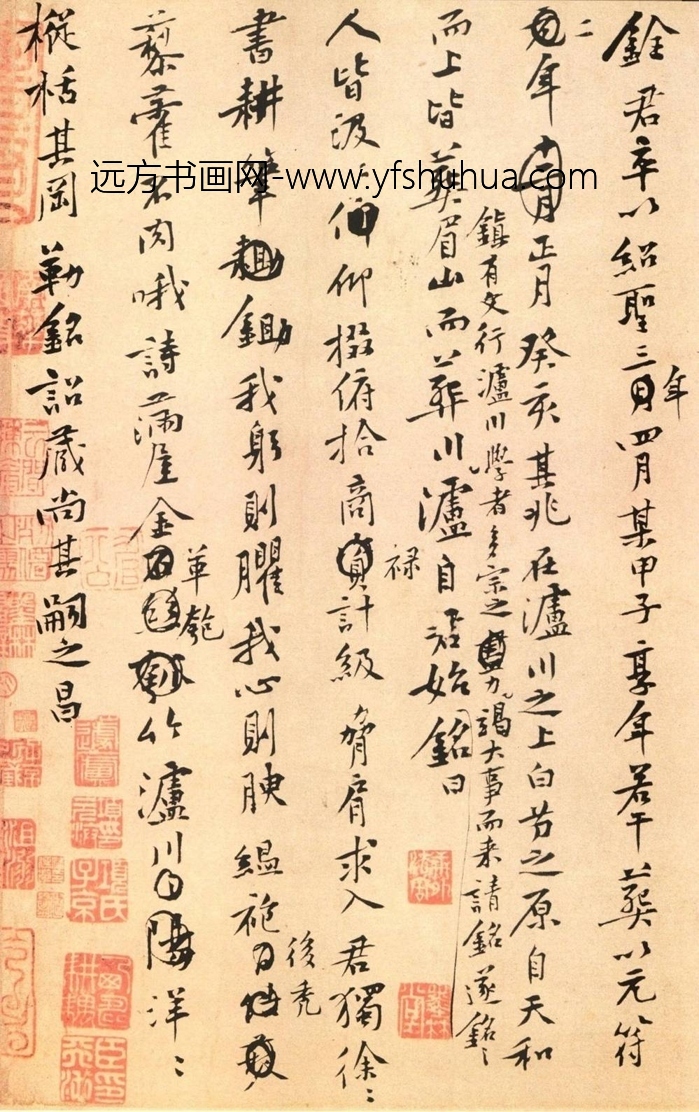 銓君卒以紹聖三年四月某甲子享年若干葬以元符
二年正月癸亥其兆在瀘川之上白芀之原自天和
鎮有文行瀘川學者多宗之力竭大事而来請銘遂銘〻
而上皆葬眉山而葬瀘川自君始銘曰
人皆汲〻仰掇俯拾商禄計級脅肩求入君獨徐〻
書耕筆鋤我躬則臞我心則腴緼袍後禿
藜藿不肉哦詩滿屋金革匏竹瀘川洋〻
樅栝其岡勒銘詔藏尚其嗣之昌
远方书画网-www.yfshuhua.com